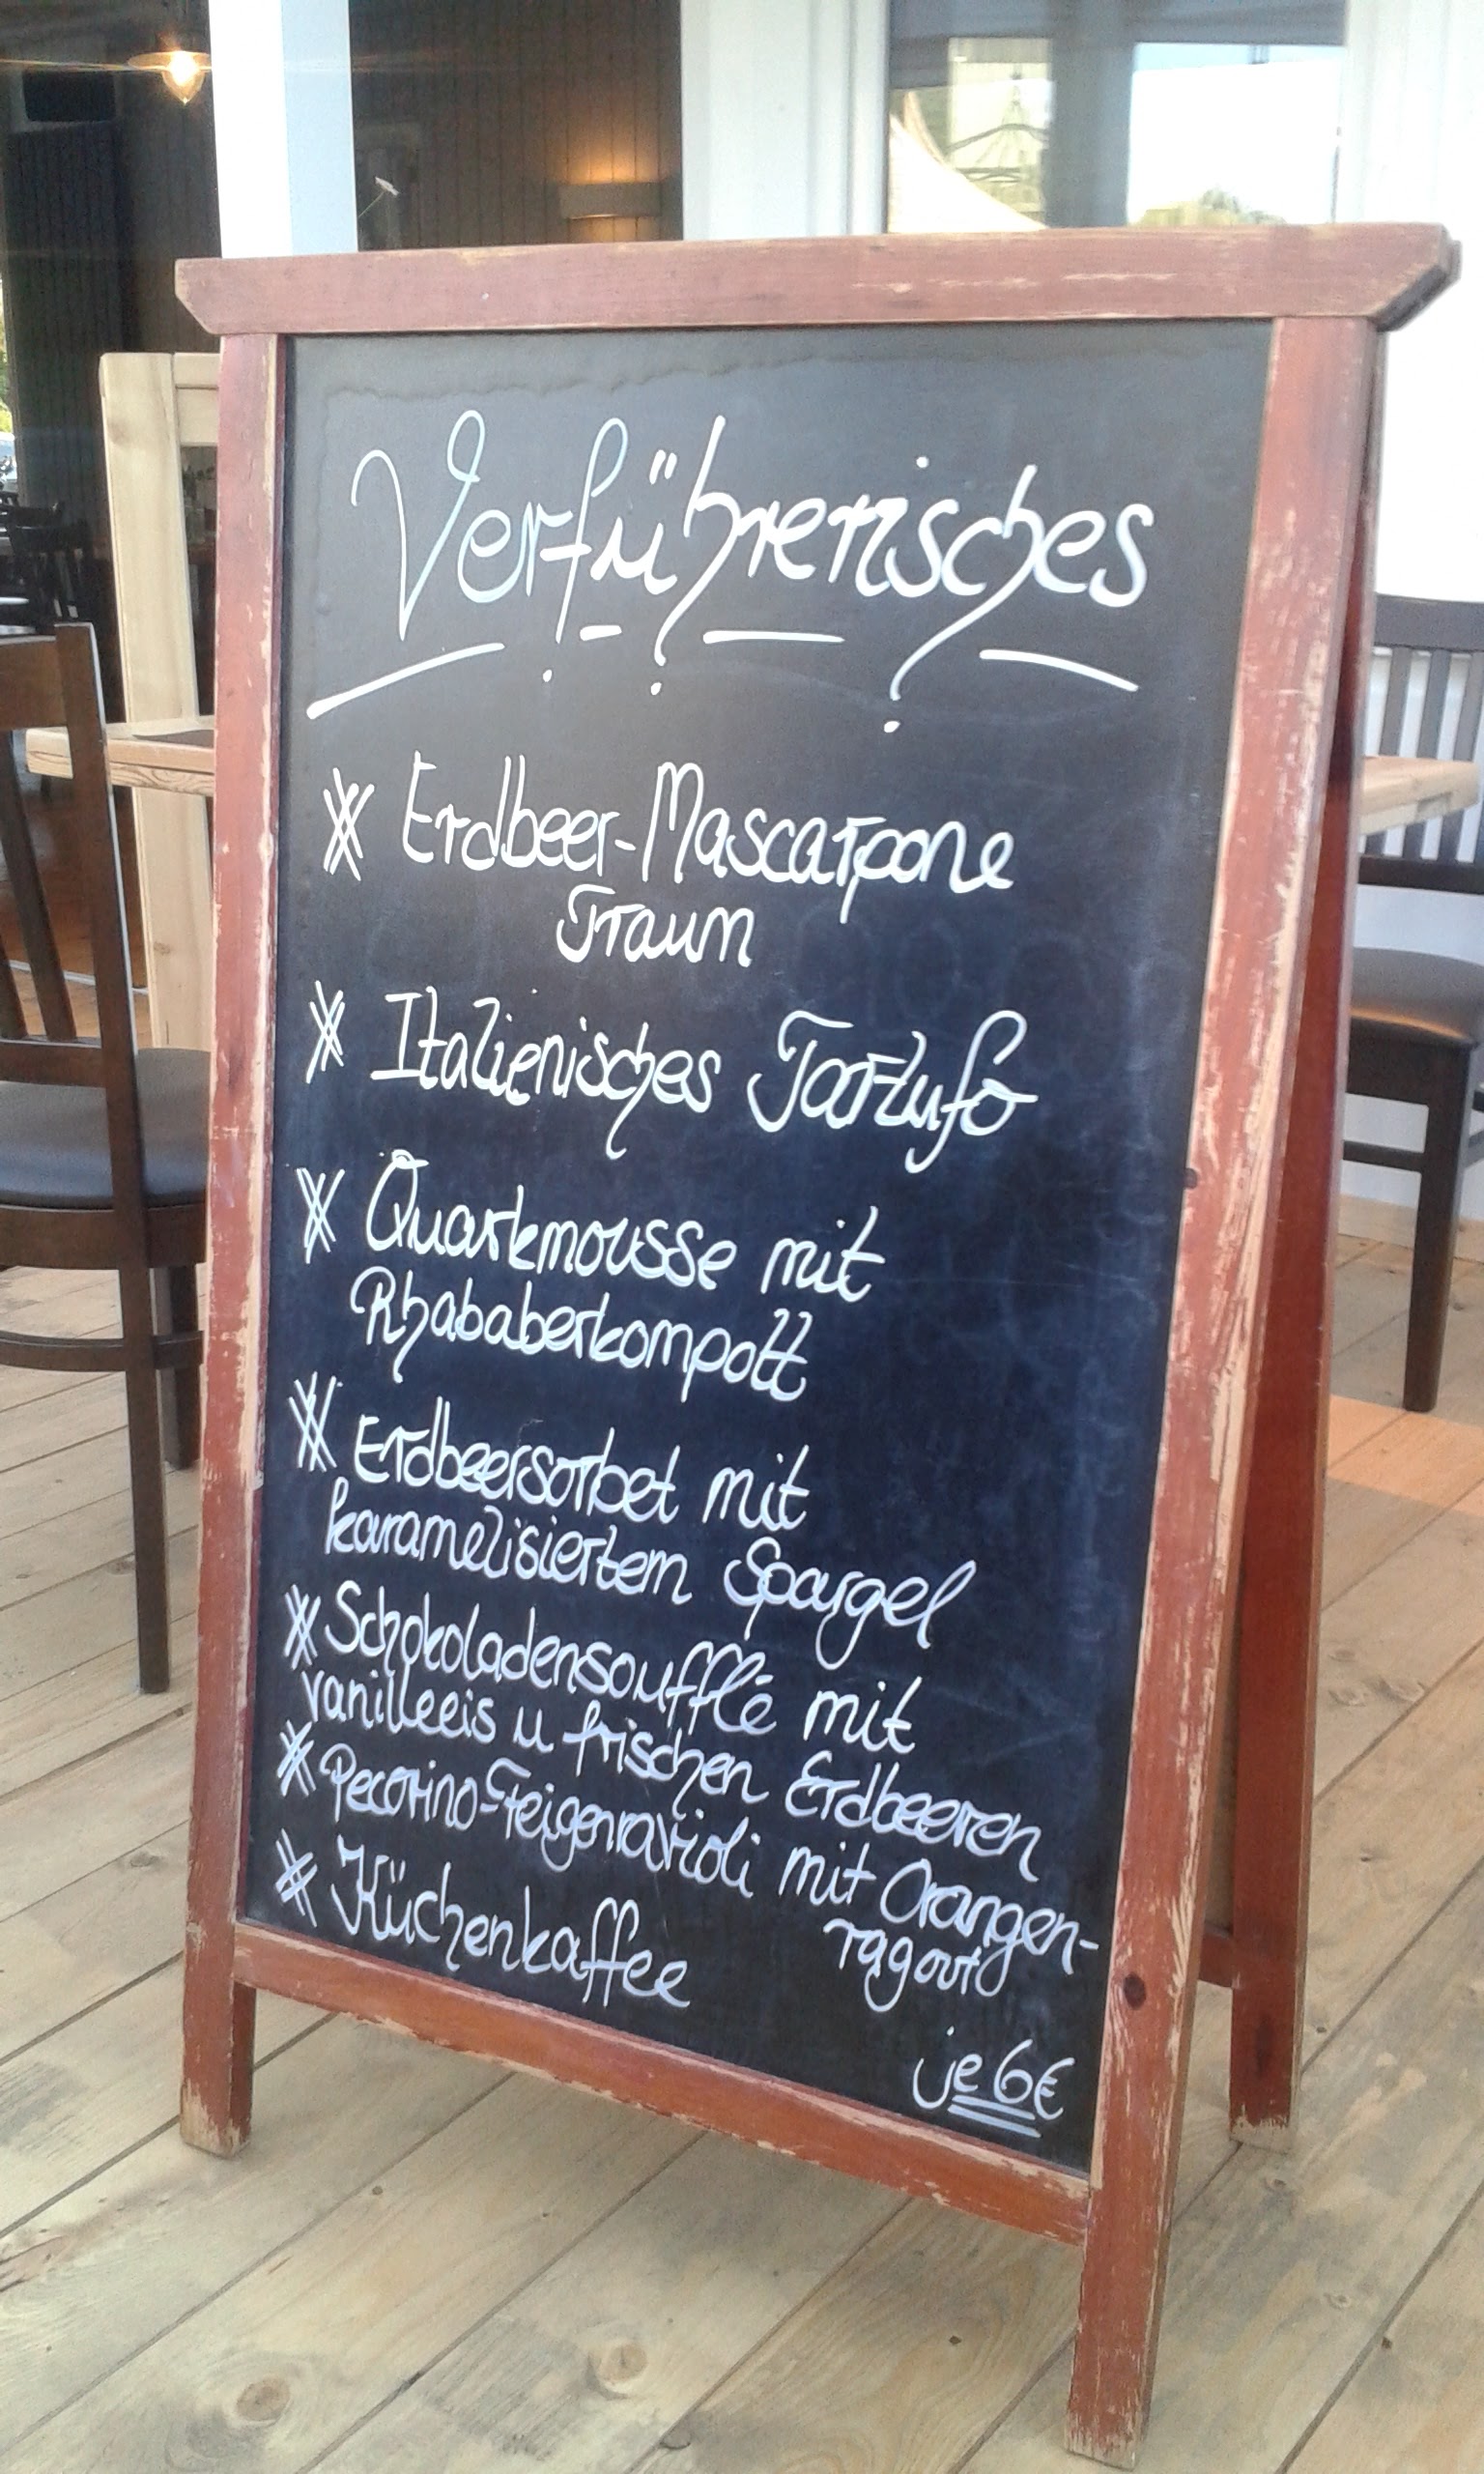 Verführerisches
Erdbeer-Mascarpone
Traum
Italienisches Tartufo
Quarkmousse mit
Rhababerkompott
Erdbeersorbet mit
karamelisiertem Spargel
Schokoladensoufflé mit
vanilleeis u frischen Erdbeeren
Pecorino-Feigenravioli mit Orangen-
ragout
Küchenkaffee
je 6€